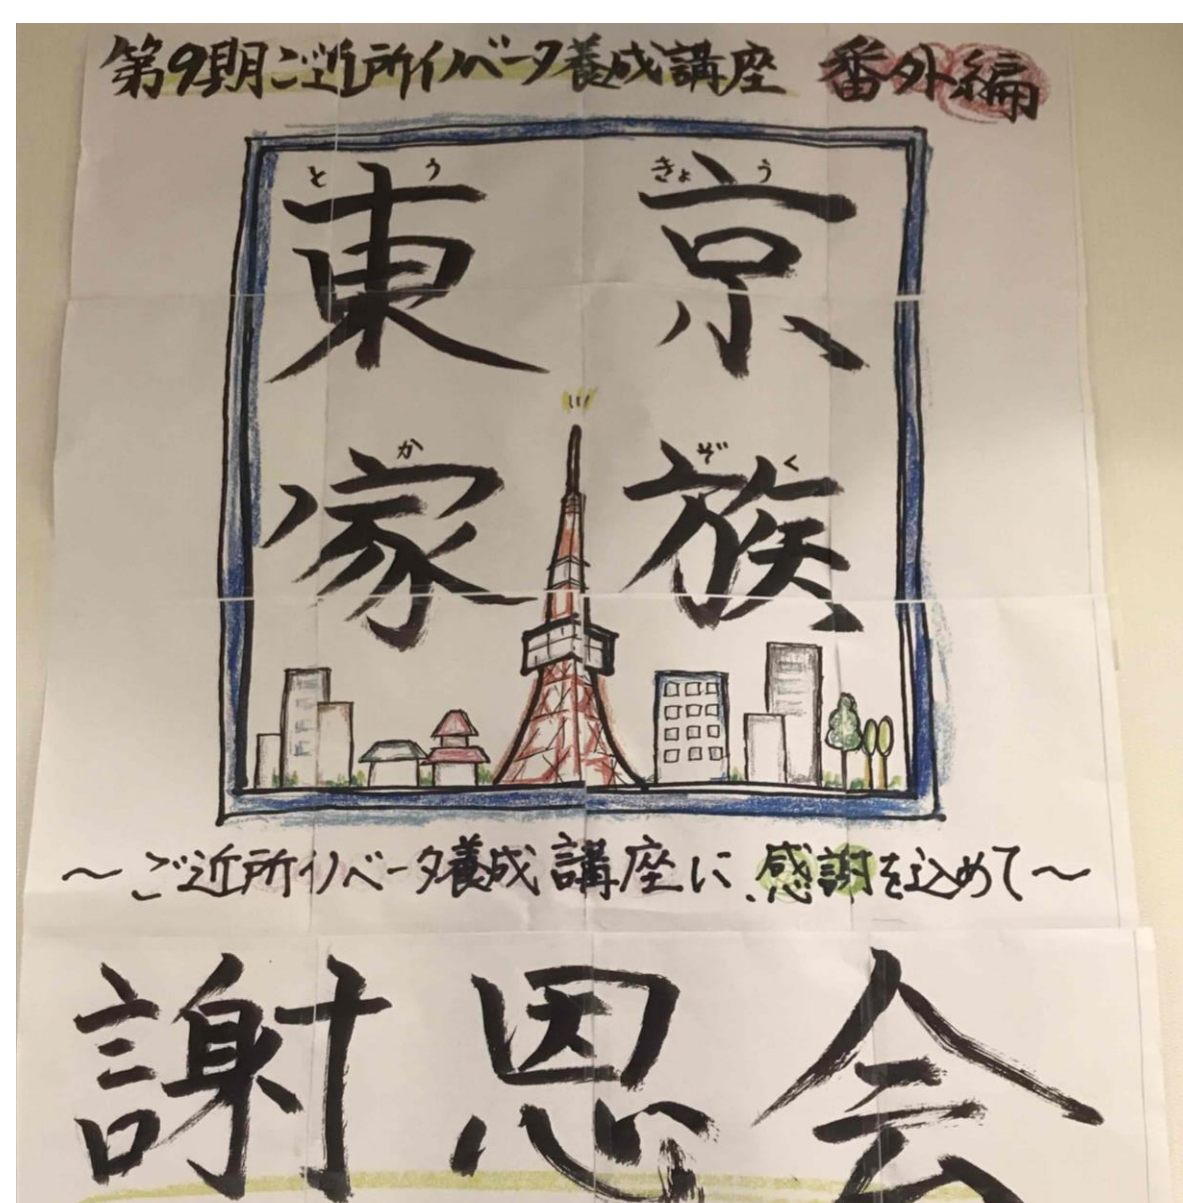 第9期ご近所イノベータ養成講座 番外編
とうきょう
東京
かぞく
家族
～ご近所イノベータ養成講座に、感謝を込めて～
謝恩会